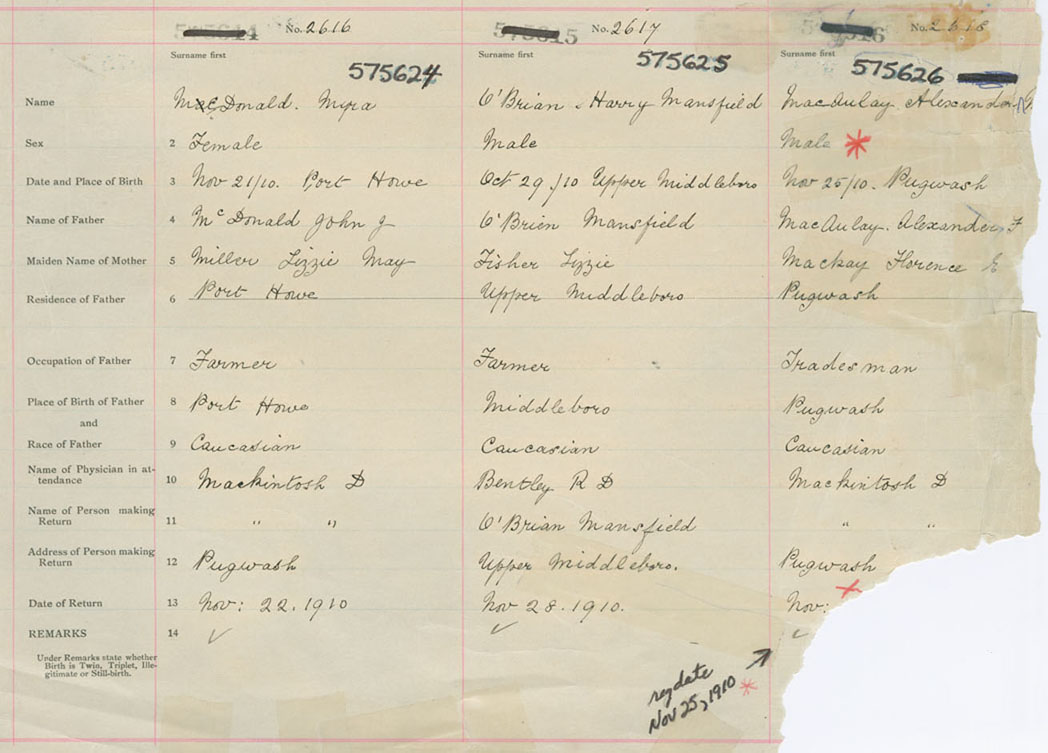 No. 2616 No. 2617 No. 2618
Surname first Surname first Surname first
575624 575625 575626
Name MacDonald. Myra O'Brian, Harry Mansfield MacAulay. Alexander
Sex 2 Female Male Male *
Date and Place of Birth 3 Nov 21/10. Port Howe Oct 29./10 Upper Middleboro Nov 25/10. Pugwash
Name of Father 4 McDonald John J O'Brien Mansfield MacAulay. Alexander F
Maiden Name of Mother 5 Miller Lizzie May Fisher Lizzie Mackay Florence E
Residence of Father 6 Port Howe Upper Middleboro Pugwash
Occupation of Father 7 Farmer Farmer Tradesman
Place of Birth of Father 8 Port Howe Middleboro Pugwash
and
Race of Father 9 Caucasian Caucasian Caucasian
Name of Physician in at-
tendance 10 Mackintosh D Bentley R D Mackintosh D
Name of Person making
Return 11 " " O'Brian Mansfield " "
Address of Person making
Return 12 Pugwash Upper Middleboro. Pugwash
Date of Return 13 Nov: 22. 1910 Nov 28. 1910. Nov:
REMARKS 14 ✓ ✓ ✓
Under Remarks state whether
Birth is Twin, Triplet, Ille-
gitimate or Still-birth.
reg date
Nov 25, 1910 *